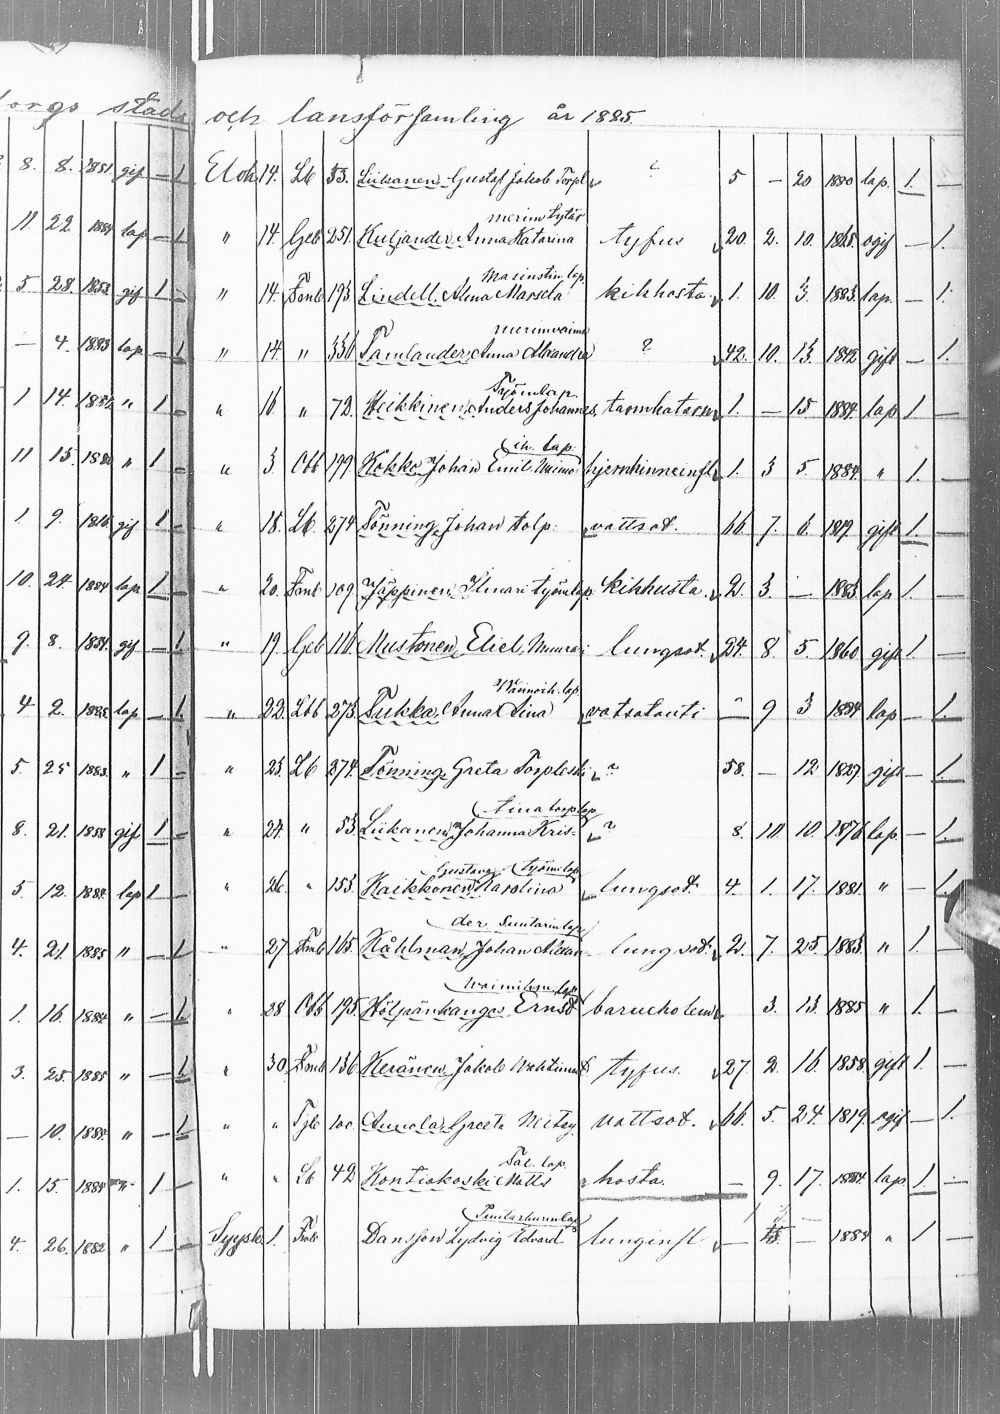 orgs stads och lansförsamling år 1885.
8. 8. 1851. gif — 1 Elok. 14. Lb 53. Liikanen Gustaf Jakob Torpl ? 5 — 20 1880 lap. 1. —
merim tytär
11 22 1884 lap — 1 " 14. Geb 251. Kuljander Anna Katarina tyfus 20. 2. 10. 1865. ogif — 1.
lap.
5 28. 1853 gif 1 — " 14. Fmb 193 Lindell Alma Marseta kikhosta 1. 10. 3. 1883. lap. — 1.
merim vaimo
— 4. 1883 lap — 1 " 14 " 336 Tamlander Anna Alexandra ? 42. 10. 13. 1842 gift — 1.
Työm lap.
1 14. 1884 " 1 — " 16. " 72. Heikkinen Anders Johannes, tarmkatarr 1. — 15 1884. lap 1 —
ih. lap.
11 15. " 1 — " 3 Obb 199 Kokko Johan Emil hjernhinneinfl 1. 3 5. 1884. " 1.
1 9. 1816 gif 1 — " 18. Lb. 274 Tönning Johan tolp. vattsot. 66. 7. 6. 1819. gift 1. —
10. 24. 1884 lap. 1 — " 20. Fmb 109 Jäppinen Ilmari työm lap. kikhusta. 2. 3. — 1883 lap 1. —
9. 8. 1834. gif — 1. " 19. Geb 116. Mustonen Eliel, lungsot. 24. 8. 5. 1860 gift 1. —
ih. lap
4 2. 1885 lap — 1. " 22. Lbb 273. Tukka Anna Aina vatsatauti — 9 3 1884 lap — 1.
5. 25 1883. " 1 — " 23. Lb 274. Tönning Greta Torpleski ? 58. — 12 1827 gift — 1.
tina torp lap
8. 21. 1858 gif 1 — " 24 " 53. Liikanen Johanna Kris- ? 8. 10. 10. 1876 lap — 1.
Gustava työm lap
5. 12. 1884. lap 1 — " 26. " 153. Haikkonen Karolina lungsot 4. 1. 17. 1881. " — 1.
der Suutarin lap
4. 21. 1885 " — 1 " 27 Fmb 165. Kåhlman Johan Alexan- lungsot. 2. 7. 25. 1883 " 1. —
lap
1. 16. 1884 " — 1. " 28 Obb 195. Höljänkangas Ernst 3. 13. 1885 " 1. —
3. 25. 1885 " — 1 " 30. Fmb 136 Keränen Jakob tyfus. 27. 2. 16. 1858. gift 1. —
— 10. 1884. " — 1 " " 100. Greeta vattsot. 66. 5. 24. 1819. ogif — 1.
lap.
1. 15. 1884 " 1 — " " Lb 42 Kontiokoski Matts hosta. — 9. 17. 1884 lap. 1. —
4. 26. 1882 " 1 — Syysk. 1. Fmb Dansson Lydvig Edvard lunginfl — — 1884 " 1 —